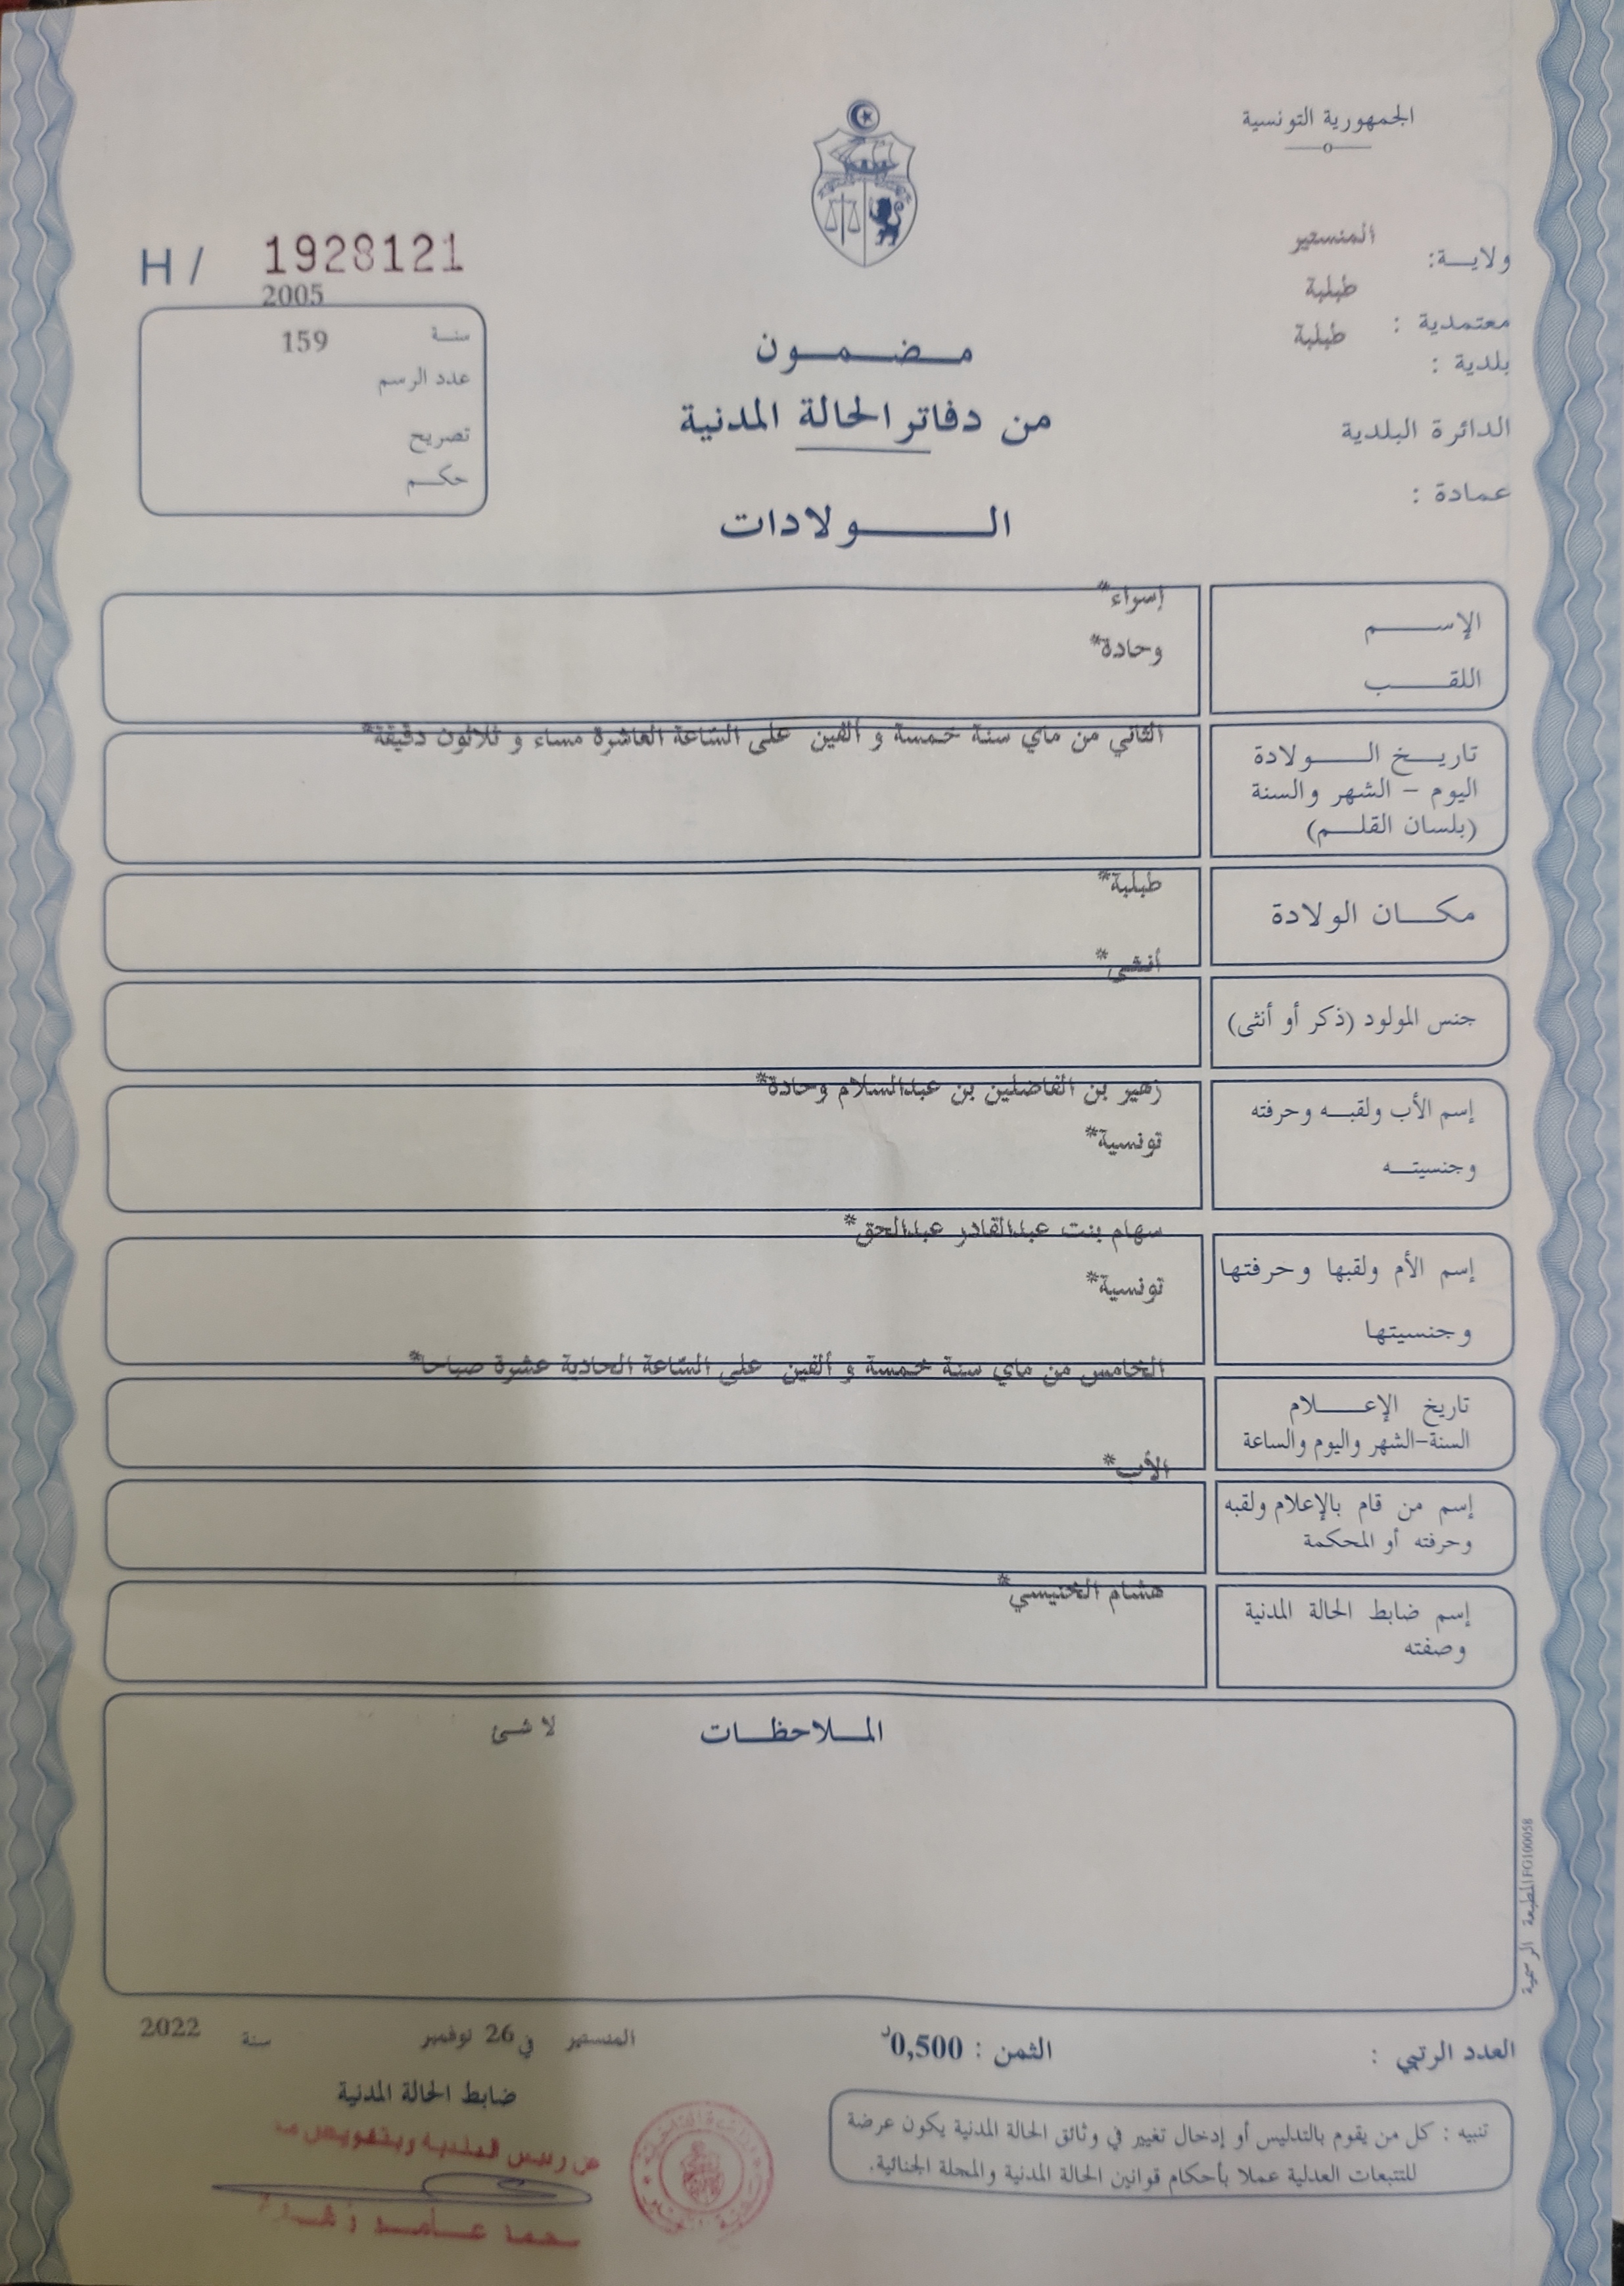 الجمهورية التونسية
ولايــة: المنستير
معتمدية : طبلبة
بلدية : طبلبة
الدائرة البلدية
عمادة :
H / 1928121
2005
سنـة 159
عدد الرسم
تصريح
حكــم
مـضـمـون
من دفاتر الحالة المدنية
الــولادات
الإســم إسراء*
اللقــب وحادة*
تاريــخ الــولادة
اليوم - الشهر والسنة
(بلسان القلــم)
الثاني من ماي سنة خمسة و ألفين على الساعة العاشرة مساء و ثلاثون دقيقة*
مكــان الولادة طبلبة*
جنس المولود (ذكر أو أنثى) أنثى*
إسم الأب ولقبــه وحرفته زهير بن الفاضلين بن عبدالسلام وحادة*
وجنسيتــه تونسية*
إسم الأم ولقبها وحرفتها سهام بنت عبدالقادر عبدالحق*
وجنسيتها تونسية*
تاريخ الإعــلام
السنة-الشهر واليوم والساعة
الخامس من ماي سنة خمسة و ألفين على الساعة الحادية عشرة صباحا*
إسم من قام بالإعلام ولقبه
وحرفته أو المحكمة
الأب*
إسم ضابط الحالة المدنية
وصفته
هشام الخنيسي*
المــلاحظــات لا شئ
المطبعة الرسمية FG100058
العدد الرتبي :
الثمن : 0,500د
المنستير في 26 نوفمبر سنة 2022
ضابط الحالة المدنية
عن رئيس البلدية وبتفويض منه
تنبيه : كل من يقوم بالتدليس أو إدخال تغيير في وثائق الحالة المدنية يكون عرضة
للتتبعات العدلية عملا بأحكام قوانين الحالة المدنية والمجلة الجنائية.